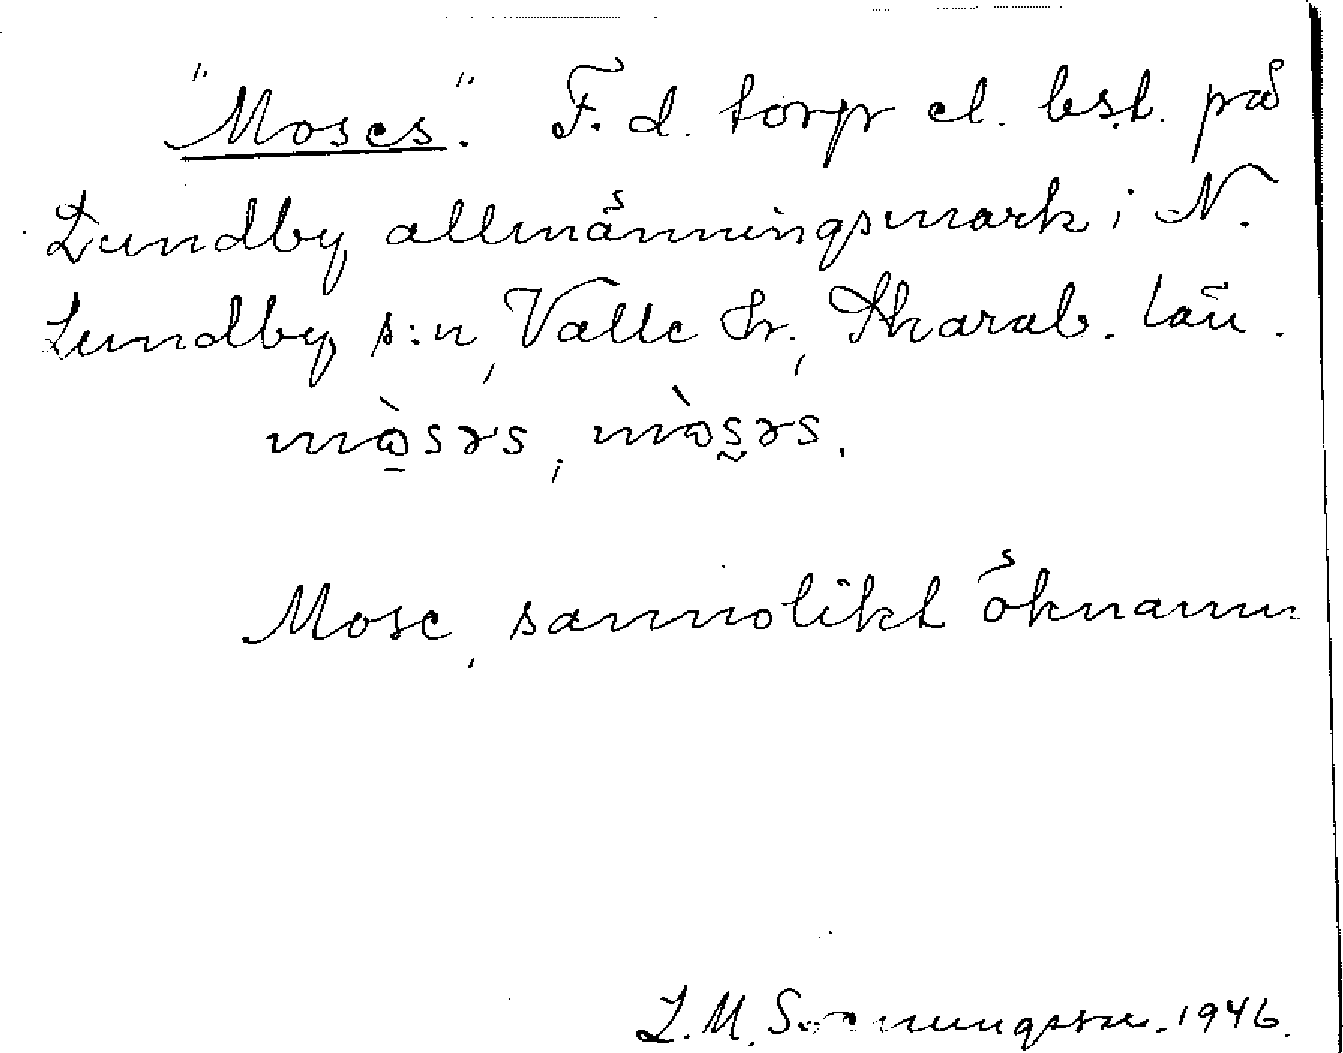 "Moses". F. d. torp el. bst. på
Lundby allmänningsmark i N.
Lundby s:n, Valle hr., Skarab. län.
mò̱səs, mòs̰əs.
Mose, sannolikt öknamn
L. M. 1946.